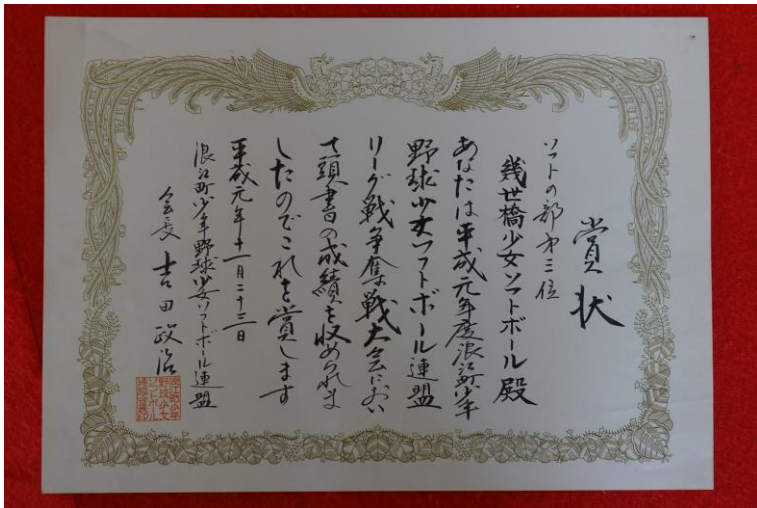 賞状
ソフトの部才三位
幾世橋少女ソフトボール殿
あなたは平成元年度浪江町少年
野球少女ソフトボール連盟
リーグ戦争奪戦大会におい
て頭書の成績を収められま
したのでこれを賞します
平成元年十一月二十三日
浪江町少年野球少女ソフトボール連盟
会長 吉田政治
浪江町少年
野球少女
ソフトボール
連盟会長印